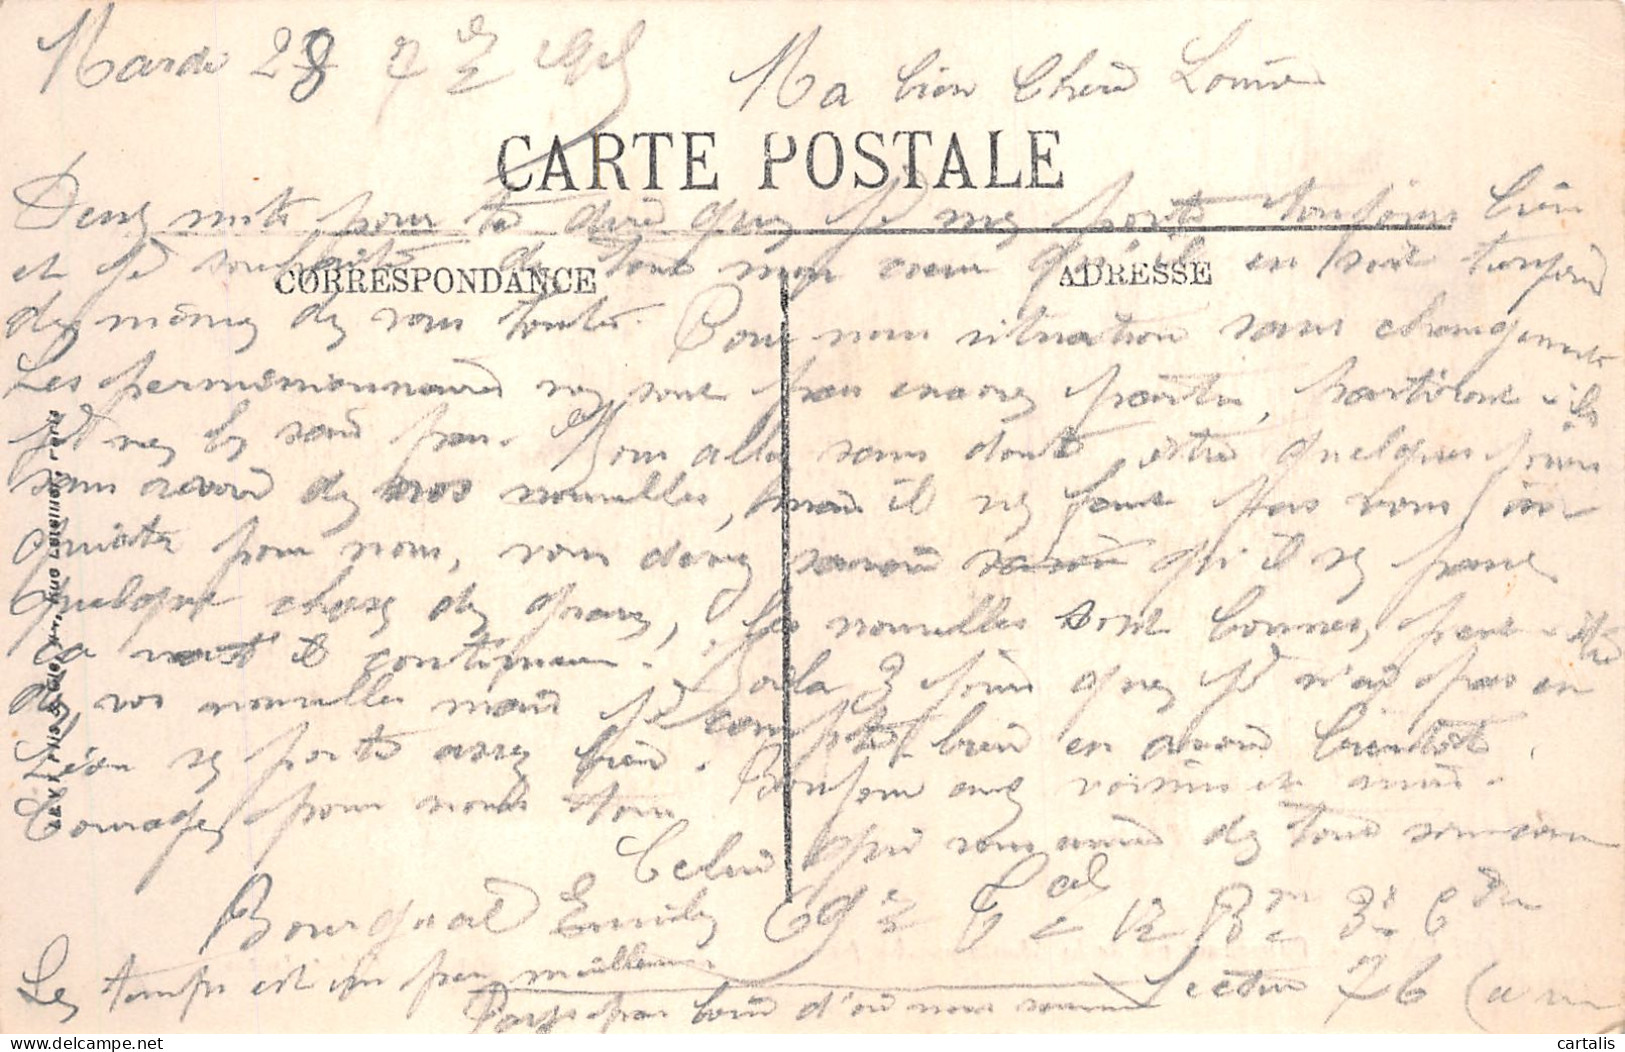 Mardi 28 7bre 1915
Ma bien chère Louise
CARTE POSTALE
Deux mots pour te dire que je me porte toujours bien
CORRESPONDANCE
ADRESSE
et je souhaite de tout mon coeur qu'il en soit toujours
de même de vous toutes. Pour nous situation sans changement
Les permissionnaires ne sont pas encore partis, partiront-ils
je ne le sais pas. Vous allez sans doute être quelques jours
sans avoir de nos nouvelles, mais il ne faut pas vous in
quiéter pour nous, vous devez savoir qu'il se passe
quelque chose de grave, les nouvelles sont bonnes, peut-être
ça va-t-il continuer. Voila 3 jours que je n'ai pas eu
de vos nouvelles mais je compte bien en avoir bientôt.
Léon se porte assez bien. Bonjour aux voisins et amis.
Courage pour nous tous
Celui qui vous aime de tout son coeur
Bourgual Emile 69e Tal 12 Bie 3e Con
Le temps est un peu meilleur
Secteur 76
pas loin d'où nous sommes